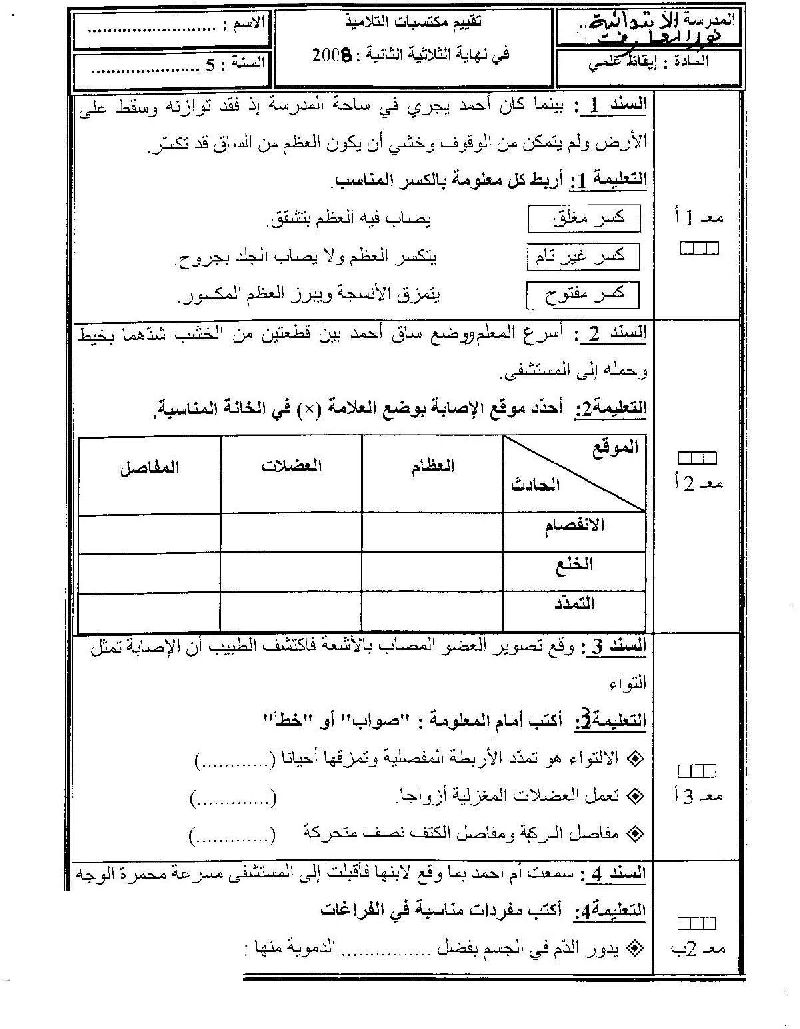 المدرسة الابتدائية ..
نور المعارف
المادة : إيقاظ علمي
تقييم مكتسبات التلاميذ
في نهاية الثلاثية الثانية : 2008
الاسم : ......................
السنة : 5 ....................
السند 1 : بينما كان أحمد يجري في ساحة المدرسة إذ فقد توازنه وسقط على
الأرض ولم يتمكن من الوقوف وخشي أن يكون العظم من الساق قد تكسّر.
التعليمة 1: أربط كل معلومة بالكسر المناسب.
معـ 1 أ
كسر مغلق يصاب فيه العظم بتشقق.
كسر غير تام يتكسر العظم ولا يصاب الجلد بجروح.
كسر مفتوح يتمزق الأنسجة ويبرز العظم المكسور.
السند 2 : أسرع المعلم ووضع ساق أحمد بين قطعتين من الخشب شدّهما بخيط
وحمله إلى المستشفى.
التعليمة2: أحدّد موقع الإصابة بوضع العلامة (×) في الخانة المناسبة.
معـ 2 أ
الموقع
الحادث
العظام العضلات المفاصل
الانفصام
الخلع
التمدّد
السند 3 : وقع تصوير العضو المصاب بالأشعة فاكتشف الطبيب أن الإصابة تمثل
التواء
التعليمة3: أكتب أمام المعلومة : "صواب" أو "خطأ"
الالتواء هو تمدّد الأربطة المفصلية وتمزقها أحيانا (............)
معـ 3 أ
تعمل العضلات المغزلية أزواجا. (............)
مفاصل الركبة ومفاصل الكتف نصف متحركة (............)
السند 4 : سمعت أم احمد بما وقع لابنها فأقبلت إلى المستشفى مسرعة محمرة الوجه
التعليمة4: أكتب مفردات مناسبة في الفراغات
معـ 2ب
يدور الدّم في الجسم بفضل ............... الدموية منها :